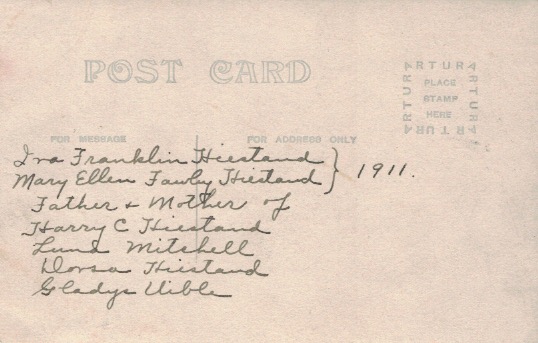 POST CARD
ARTURA
ARTURA
ARTURA
ARTURA
PLACE
STAMP
HERE
FOR MESSAGE
FOR ADDRESS ONLY
Ira Franklin Hiestand
Mary Ellen Fawley Hiestand } 1911.
Father + Mother of
Harry C Hiestand
Luna Mitshell
Dorsa Hiestand
Gladys Uible